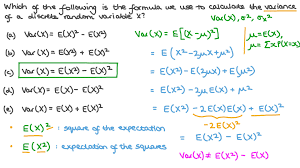 Which of the following is the formula we use to calculate the variance
of a discrete random variable X?
Var(X), σ², σₓ²
(a) Var(X) = E(X)² - E(X²)
(b) Var(X) = E(X²) + E(X)²
(c) Var(X) = E(X²) - E(X)²
(d) Var(X) = E(X) - E(X)²
(e) Var(X) = E(X) + E(X)²
• E(X)² : square of the expectation
• E(X²) : expectation of the squares
Var(X) = E[(X-μ)²]
μ = E(X),
μ = Σx P(X=x)
= E(X² - 2μX + μ²)
= E(X²) - E(2μX) + E(μ²)
= E(X²) - 2μE(X) + μ²
= E(X²) - 2E(X)E(X) + E(X)²
-2E(X)²
= E(X²) - E(X)²
Var(X) ≠ E(X²) - E(X)